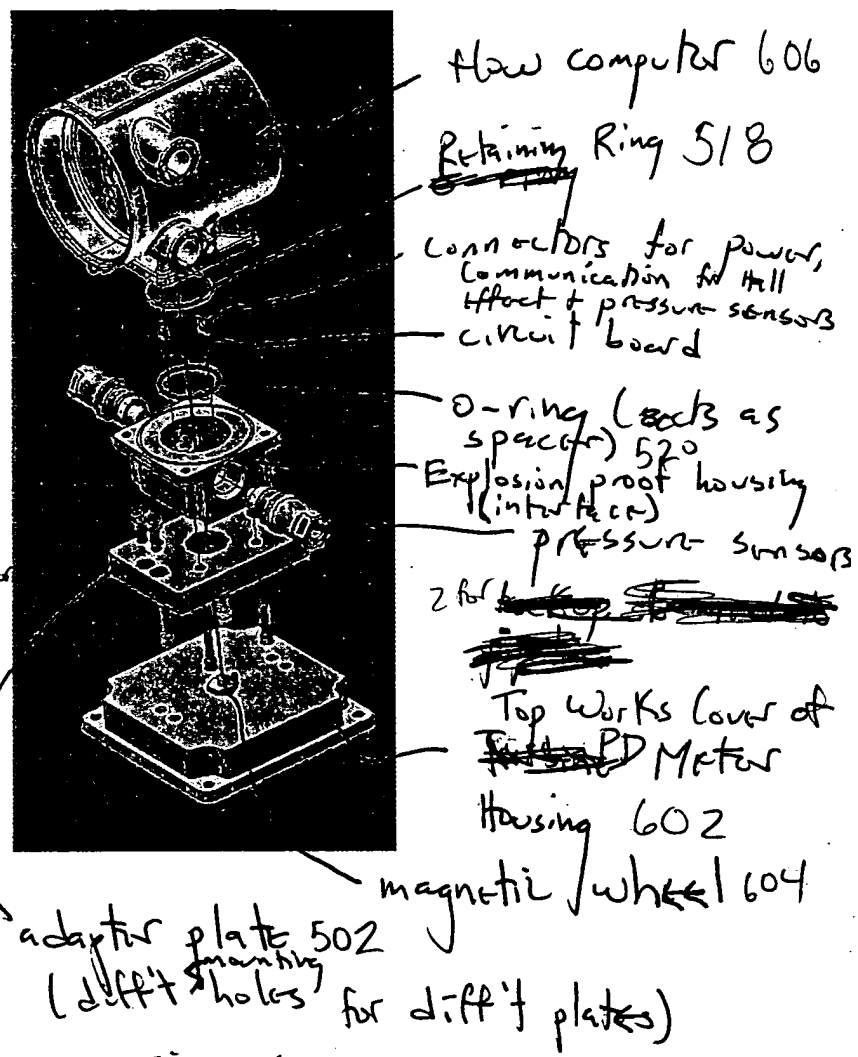 flow computer 606
Retaining Ring 518
connectors for power,
communication for Hall
effect + pressure sensors
circuit board
o-ring (acts as
spacer) 520
Explosion proof housing
(interface)
pressure sensors
2 for
Top Works Cover of
PD Meter
Housing 602
magnetic wheel 604
adapter plate 502
mounting
(diff't holes for diff't plates)